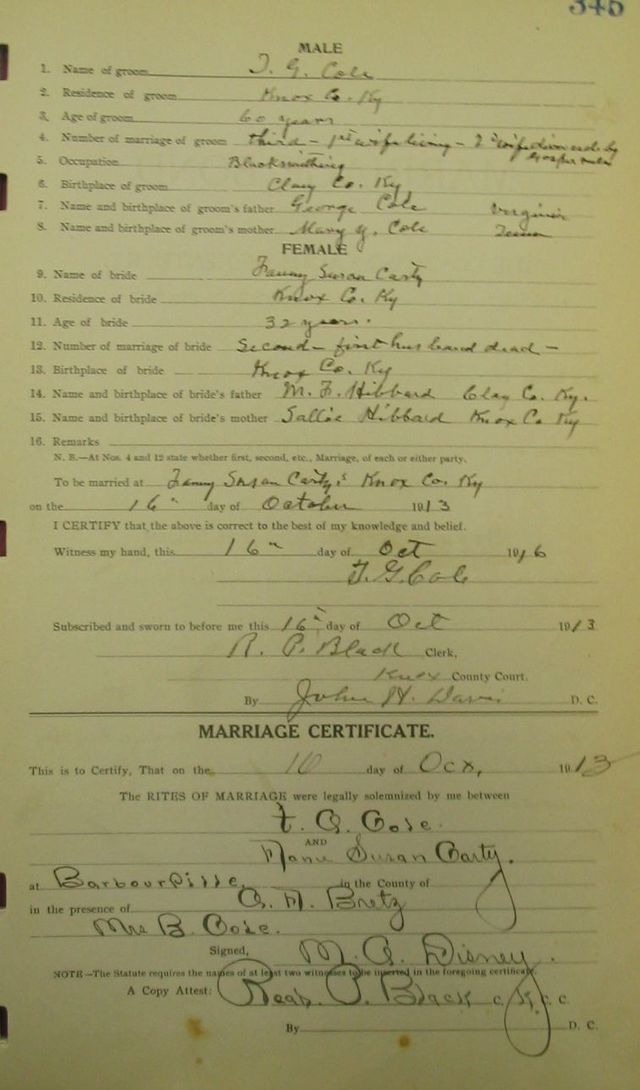 345
MALE
1. Name of groom T. G. Cole
2. Residence of groom Knox Co. Ky
3. Age of groom 60 years
4. Number of marriage of groom third - 1st wife living - 2nd wife
5. Occupation Blacksmithing
6. Birthplace of groom Clay Co. Ky
7. Name and birthplace of groom's father George Cole Virginia
8. Name and birthplace of groom's mother Mary Y. Cole Tenn
FEMALE
9. Name of bride Fanny Susan Carty
10. Residence of bride Knox Co. Ky
11. Age of bride 32 years.
12. Number of marriage of bride Second - first husband dead -
13. Birthplace of bride Knox Co. Ky
14. Name and birthplace of bride's father M. F. Hibbard Clay Co. Ky.
15. Name and birthplace of bride's mother Sallie Hibbard Knox Co Ky
16. Remarks
N. B.—At Nos. 4 and 12 state whether first, second, etc., Marriage, of each or either party.
To be married at Fanny Susan Carty's Knox Co. Ky
on the 16" day of October 1913
I CERTIFY that the above is correct to the best of my knowledge and belief.
Witness my hand, this 16" day of Oct 1916
T. G. Cole
Subscribed and sworn to before me this 16" day of Oct 1913
R. P. Black Clerk,
Knox County Court.
By John H. Davis D. C.
MARRIAGE CERTIFICATE.
This is to Certify, That on the 16 day of Oct, 1913
The RITES OF MARRIAGE were legally solemnized by me between
T. G. Cole.
AND
Susan Carty.
at Barbourville, in the County of
in the presence of Bretz
Mrs B. Cole.
Signed, M. G. Disney.
NOTE—The Statute requires the names of at least two witnesses to be inserted in the foregoing certificate.
A Copy Attest: Read P. Black C. K. C. C.
By D. C.